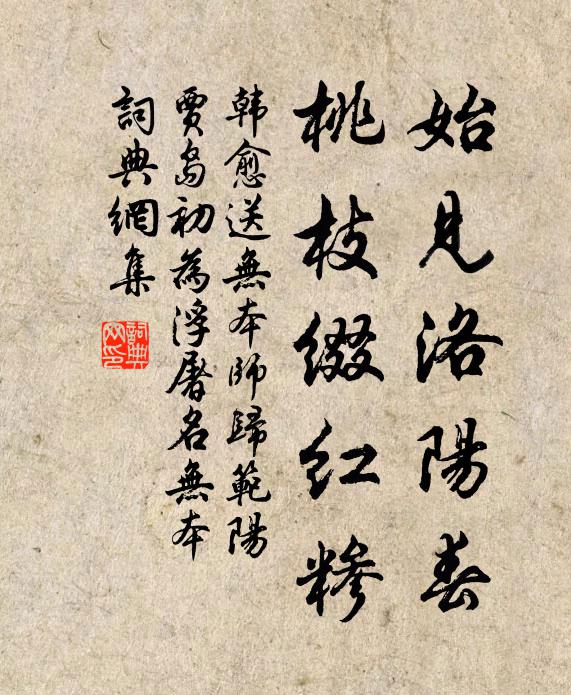 始見洛陽春
桃枝綴紅糝
韓愈送無本師歸範陽
賈島初為浮屠名無本
詞典網集
詞典
网印